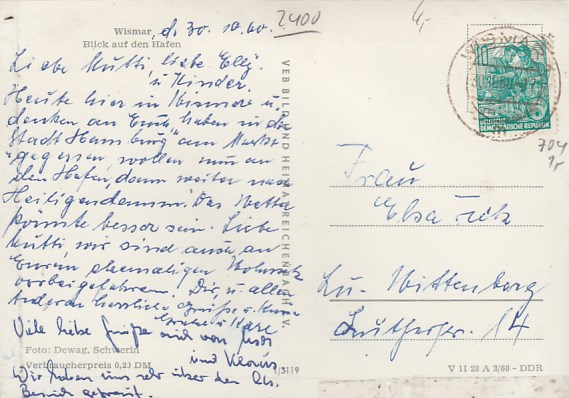 Wismar d. 30. 10. 60.
2400
4,-
Blick auf den Hafen
Liebe Mutti, liebe Elly
u. Kinder.
Heute hier in Wismar u.
denken an Euch, haben in der
"Stadt Hamburg" am Markt
gegessen, wollen nun an
den Hafen, dann weiter nach
Heiligendamm. Das Wetter
könnte besser sein. Liebe
Mutti wir sind auch an
Eurem ehemaligen
vorbeigefahren. Dir u. allen
Anderen herzliche Grüße u.
Viele liebe Grüße auch von
und Klaus
Wir haben uns sehr über den
Besuch gefreut.
Foto: Dewag, Schwerin
Verbraucherpreis 0,23 DM
VEB BILD UND HEIMAT REICHENBACH i. V.
1/3119
WISMAR
10
DEUTSCHE
DEMOKRATISCHE REPUBLIK
704
1,-
Frau
Elsa
Lu.- Wittenberg
Lutherstr. 14
V 11 28 A 3/60 - DDR